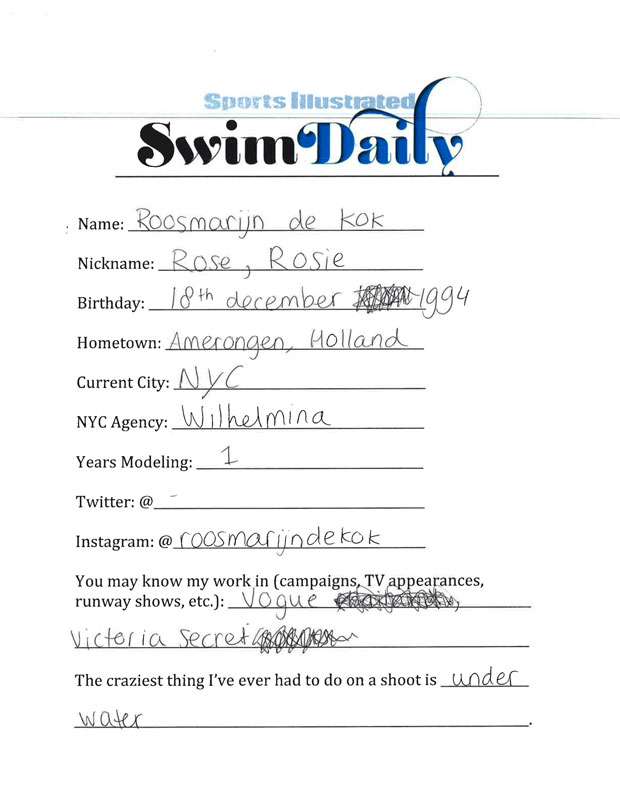 Sports Illustrated
Swim Daily
Name: Roosmarijn de Kok
Nickname: Rose, Rosie
Birthday: 18th december 1994
Hometown: Amerongen, Holland
Current City: NYC
NYC Agency: Wilhelmina
Years Modeling: 1
Twitter: @ -
Instagram: @ roosmarijndekok
You may know my work in (campaigns, TV appearances,
runway shows, etc.): Vogue
Victoria Secret
The craziest thing I've ever had to do on a shoot is under
water.